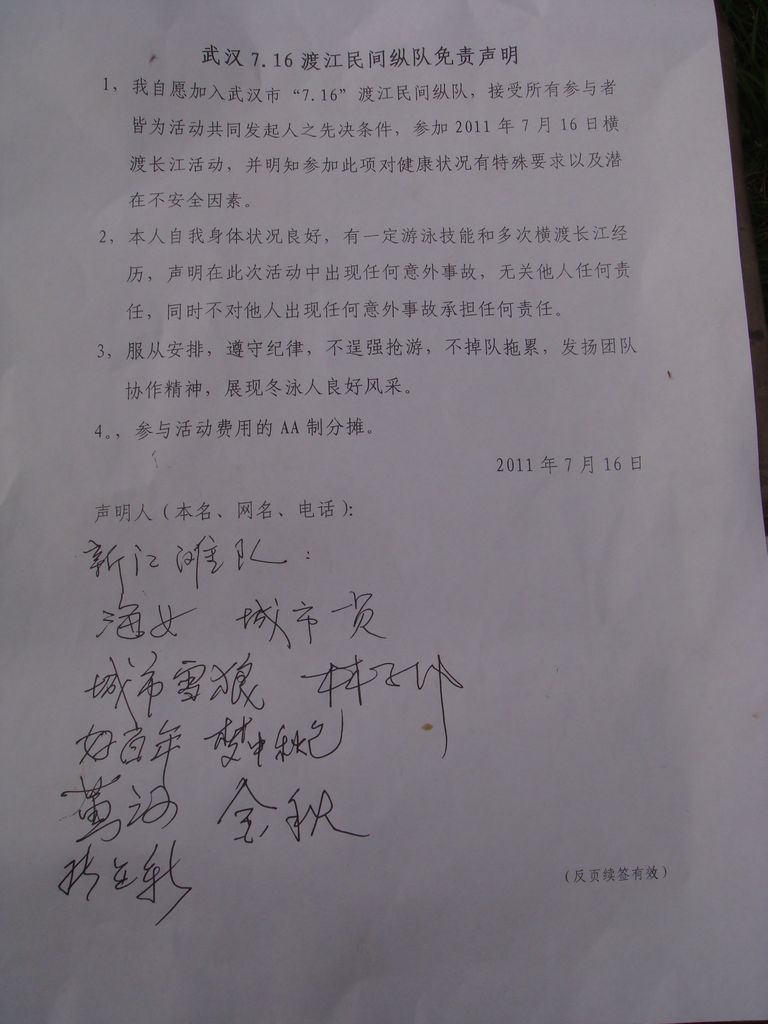 武汉 7.16 渡江民间纵队免责声明
1, 我自愿加入武汉市“7.16”渡江民间纵队, 接受所有参与者
皆为活动共同发起人之先决条件, 参加 2011 年 7 月 16 日横
渡长江活动, 并明知参加此项对健康状况有特殊要求以及潜
在不安全因素。
2, 本人自我身体状况良好, 有一定游泳技能和多次横渡长江经
历, 声明在此次活动中出现任何意外事故, 无关他人任何责
任, 同时不对他人出现任何意外事故承担任何责任。
3, 服从安排, 遵守纪律, 不逞强抢游, 不掉队拖累, 发扬团队
协作精神, 展现冬泳人良好风采。
4。, 参与活动费用的 AA 制分摊。
2011 年 7 月 16 日
声明人(本名、网名、电话):
新江滩队:
海女 城市
城市雪狼
好百年 梦中秋
金秋
(反页续签有效)